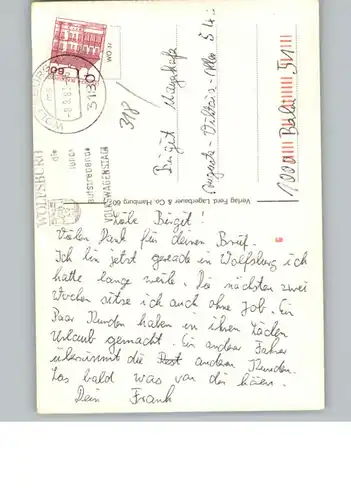 Liebe Birgit!
Vielen Dank für deinen Brief.
Ich bin jetzt gerade in Wolfsburg ich
hatte lange weile. Die nächsten zwei
Wochen sitze ich auch ohne Job. Ein
Paar Kunden haben in ihren Läden
Urlaub gemacht. Ein anderer Fahrer
übernimmt die Rest anderen Kunden.
Las bald was von dir hören.
Dein Frank
Birgit
Auguste-Viktoria-Allee
1000 Berlin 51
318/
60
3180
WOLFSBURG
die
junge
aufstrebende
VOLKSWAGENSTADT
Verlag Ferd. Lagerbauer & Co. Hamburg 60